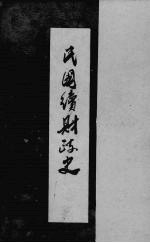 民國續財政史